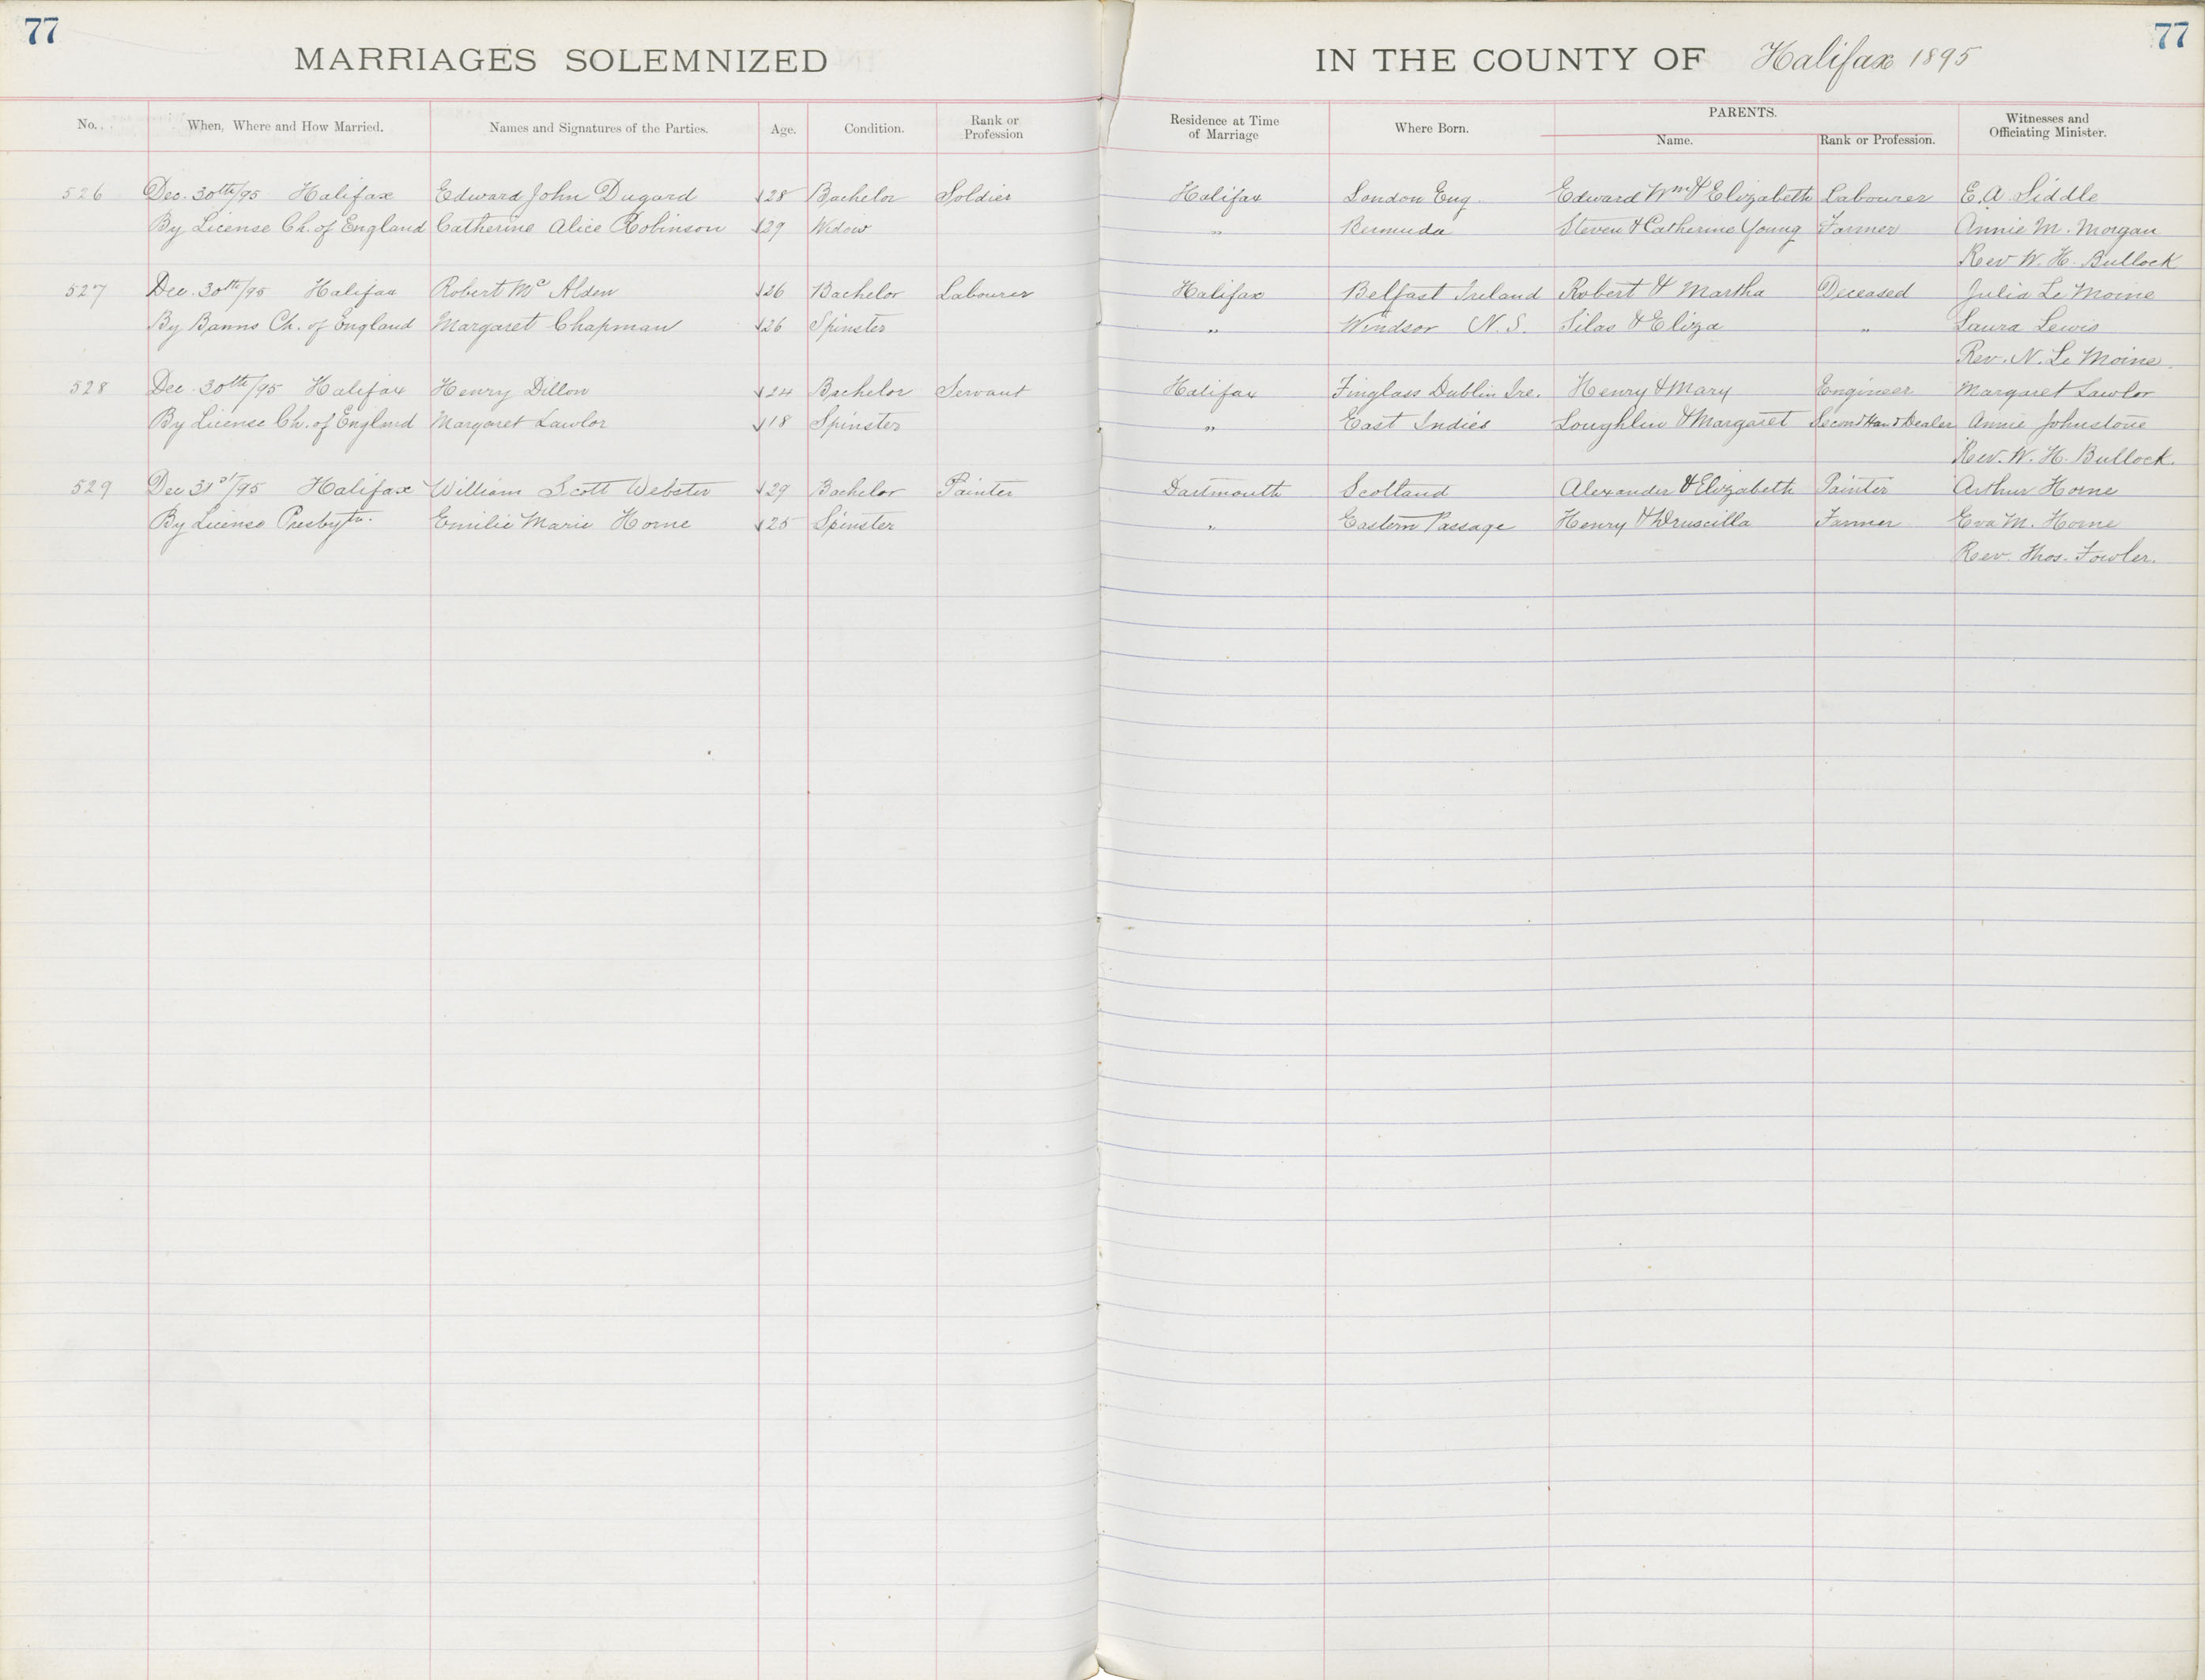 77
77
MARRIAGES SOLEMNIZED IN THE COUNTY OF Halifax 1895
No. When, Where and How Married. Names and Signatures of the Parties. Age. Condition. Rank or Profession Residence at Time of Marriage Where Born. PARENTS. Name. Rank or Profession. Witnesses and Officiating Minister.
526 Dec. 30th/95 Halifax Edward John Dugard 28 Bachelor Soldier Halifax London Eng. Edward Wm & Elizabeth Labourer E. A. Siddle
By License Ch. of England Catherine Alice Robinson 29 Widow " Bermuda Steven & Catherine Young Farmer Annie M. Morgan
Rev W. H. Bullock
527 Dec. 30th/95 Halifax Robert Mc Alden 26 Bachelor Labourer Halifax Belfast Ireland Robert & Martha Deceased Julia Le Moine
By Banns Ch. of England Margaret Chapman 26 Spinster " Windsor N. S. Silas & Eliza " Laura Lewis
Rev. N. Le Moine.
528 Dec. 30th/95 Halifax Henry Dillon 24 Bachelor Servant Halifax Finglass Dublin Ire. Henry & Mary Engineer Margaret Lawlor
By License Ch. of England Margaret Lawlor 18 Spinster " East Indies Loughlin & Margaret Second Hand Dealer Annie Johnstone
Rev. W. H. Bullock.
529 Dec 31st/95 Halifax William Scott Webster 29 Bachelor Painter Dartmouth Scotland Alexander & Elizabeth Painter Arthur Horne
By License Presbytn. Emilie Marie Horne 25 Spinster " Eastern Passage Henry & Druscilla Farmer Eva M. Horne
Rev. Thos. Fowler.